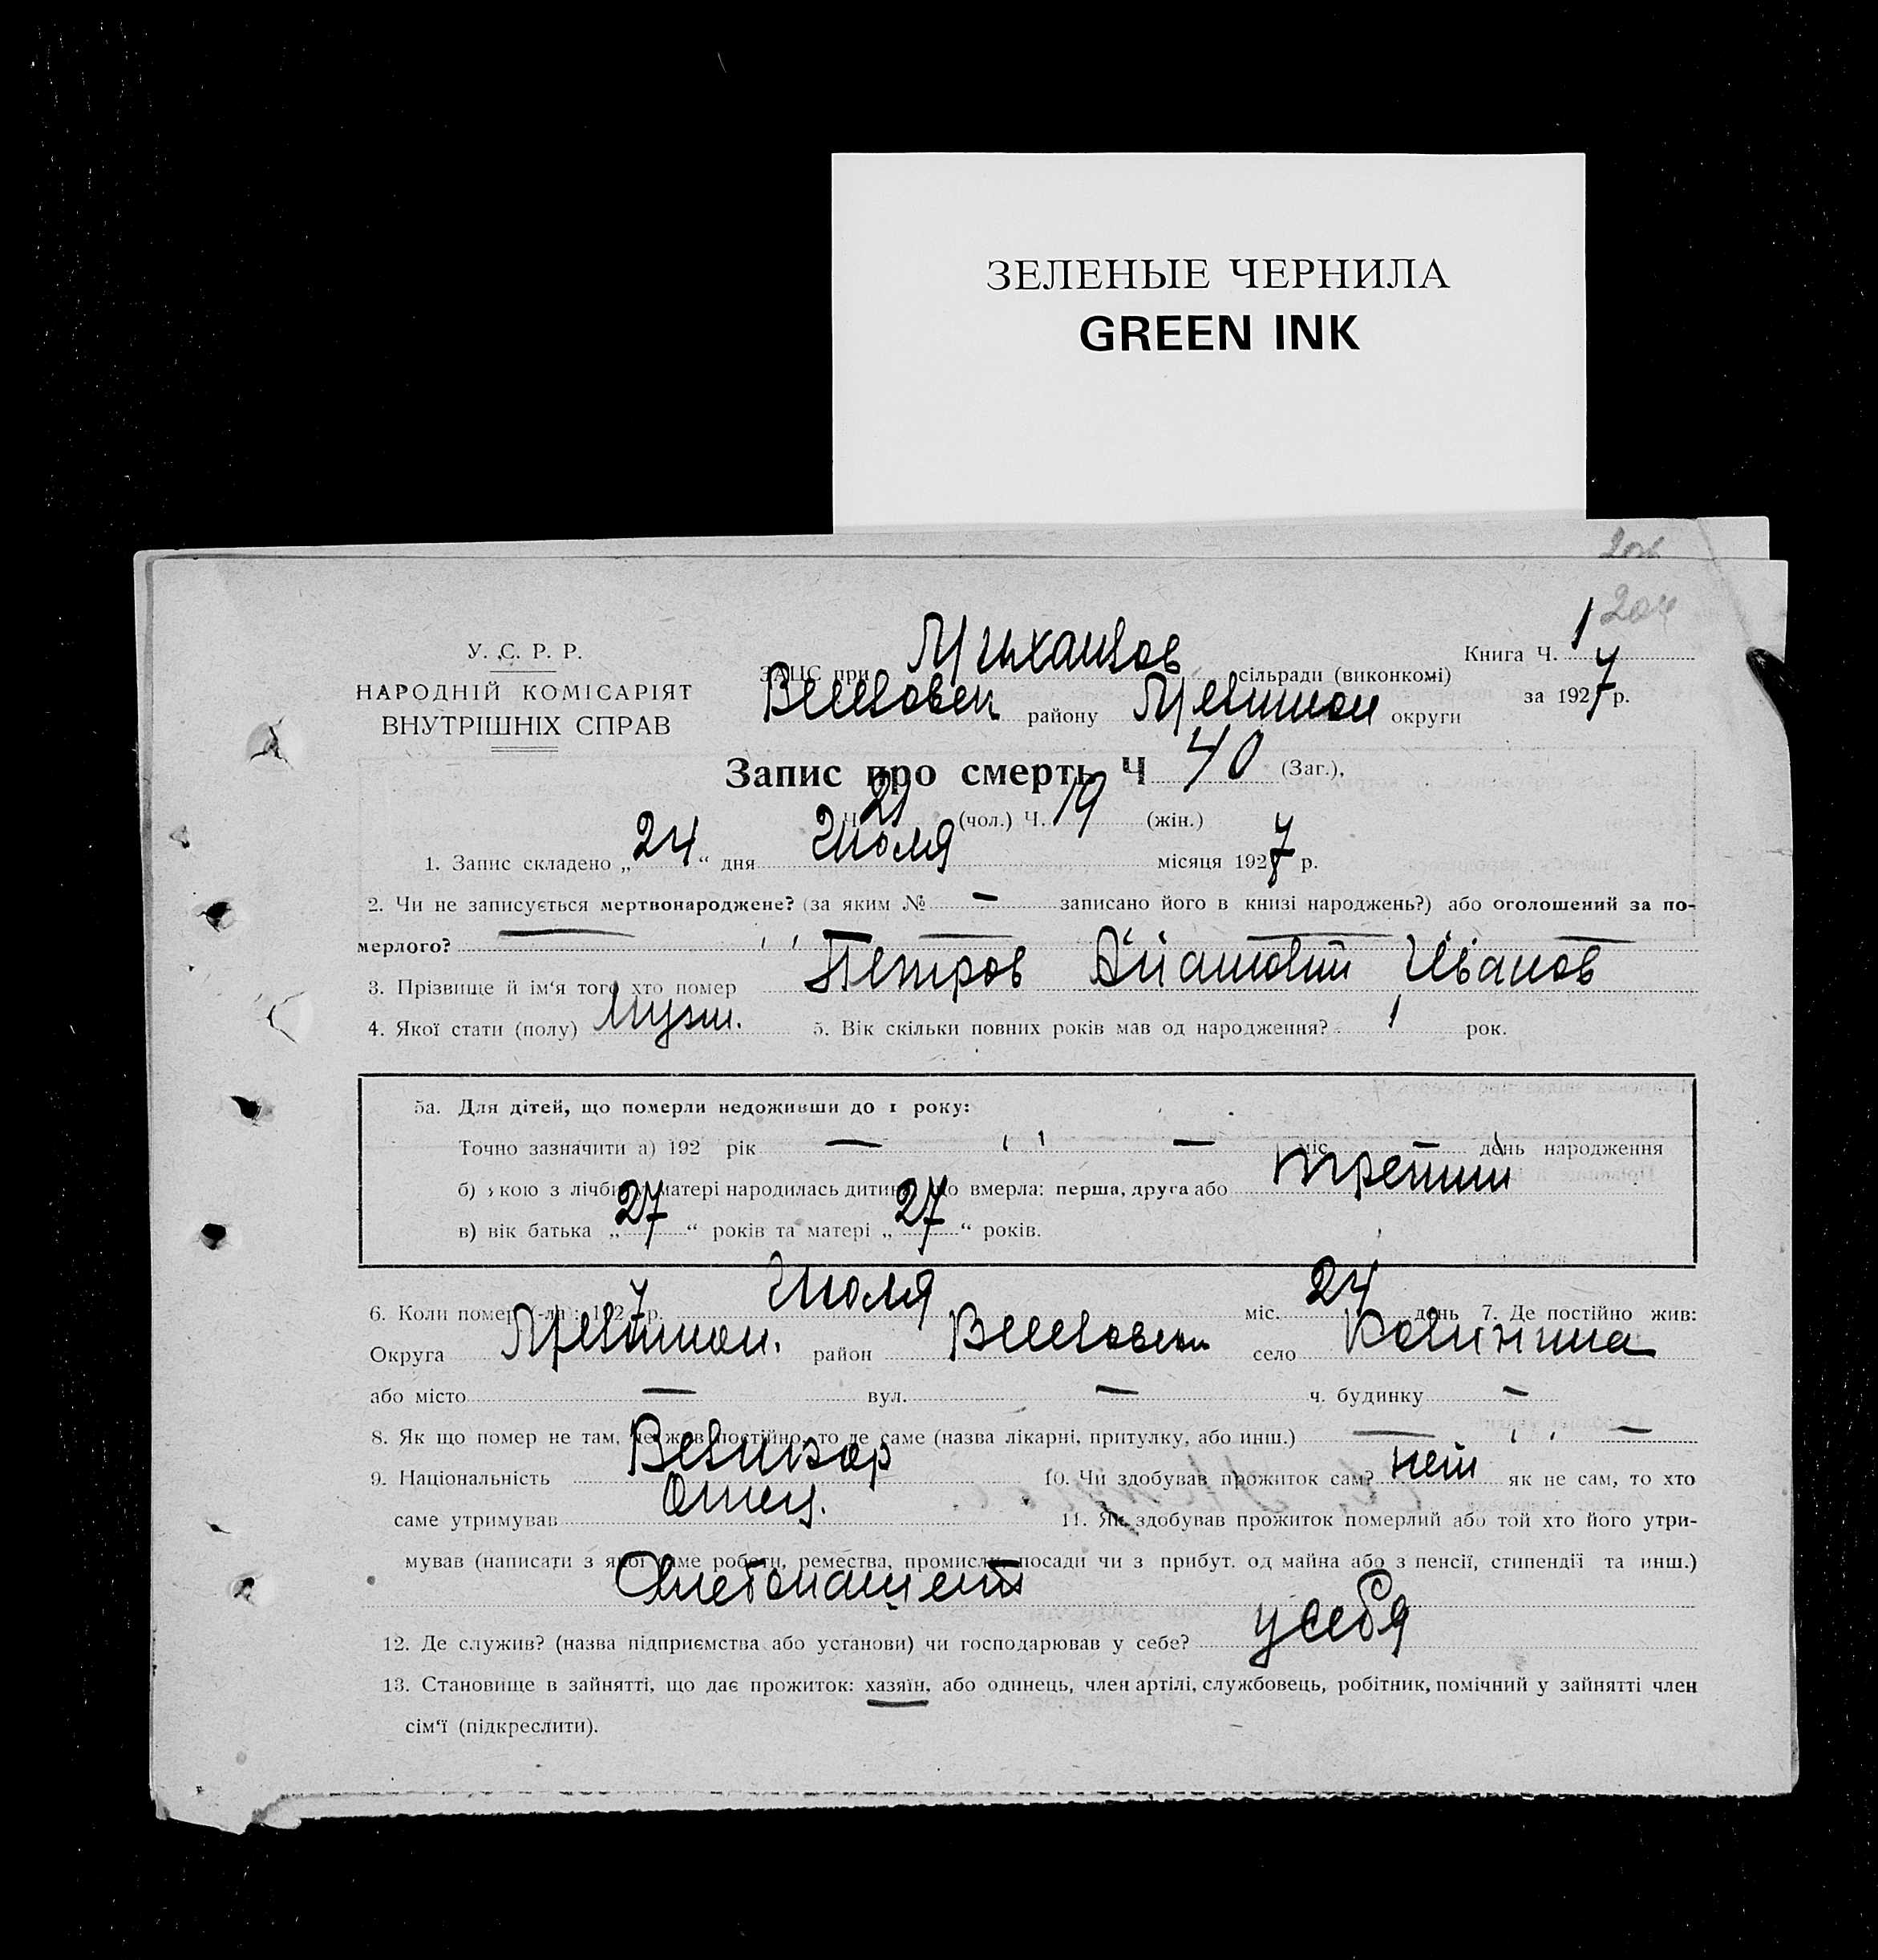 ЗЕЛЕНЫЕ ЧЕРНИЛА
GREEN INK
204
У. С. Р. Р.
НАРОДНІЙ КОМІСАРІЯТ
ВНУТРІШНІХ СПРАВ
ЗАЦС при Михайлов сільради (виконкомі)
району округи
Книга Ч. 1
за 1927 р.
Запис про смерть Ч 40 (Заг.),
Ч. 21 (чол.) Ч. 19 (жін.)
1. Запис складено „ 24 “ дня Июля місяця 1927 р.
2. Чи не записується мертвонароджене? (за яким № — записано його в книзі народжень?) або оголошений за по-
мерлого?
3. Прізвище й ім‘я того хто помер Петров Иванов
4. Якої стати (полу) Мужч. 5. Вік скільки повних років мав од народження? 1 рок.
5а. Для дітей, що померли недоживши до 1 року:
Точно зазначити а) 192 рік — — міс. — день народження
б) якою з лічби у матері народилась дитина, що вмерла: перша, друга або третий
в) вік батька „ 27 “ років та матері „ 27 “ років.
6. Коли помер (-ла): 1927 р. Июля міс. 24 день 7. Де постійно жив:
Округа район село Калинина
або місто — вул. — ч. будинку —
8. Як що помер не там, де жив постійно, то де саме (назва лікарні, притулку, або инш.) — —
9. Національність 10. Чи здобував прожиток сам? нет як не сам, то хто
саме утримував Отец. 11. Як здобував прожиток померлий або той хто його утри-
мував (написати з якої саме роботи, ремества, промислу, посади чи з прибут. од майна або з пенсії, стипендії та инш.)
Хлебопашест
12. Де служив? (назва підприємства або установи) чи господарював у себе? у себя
13. Становище в зайнятті, що дає прожиток: хазяїн, або одинець, член артілі, службовець, робітник, помічний у зайнятті член
сім‘ї (підкреслити).